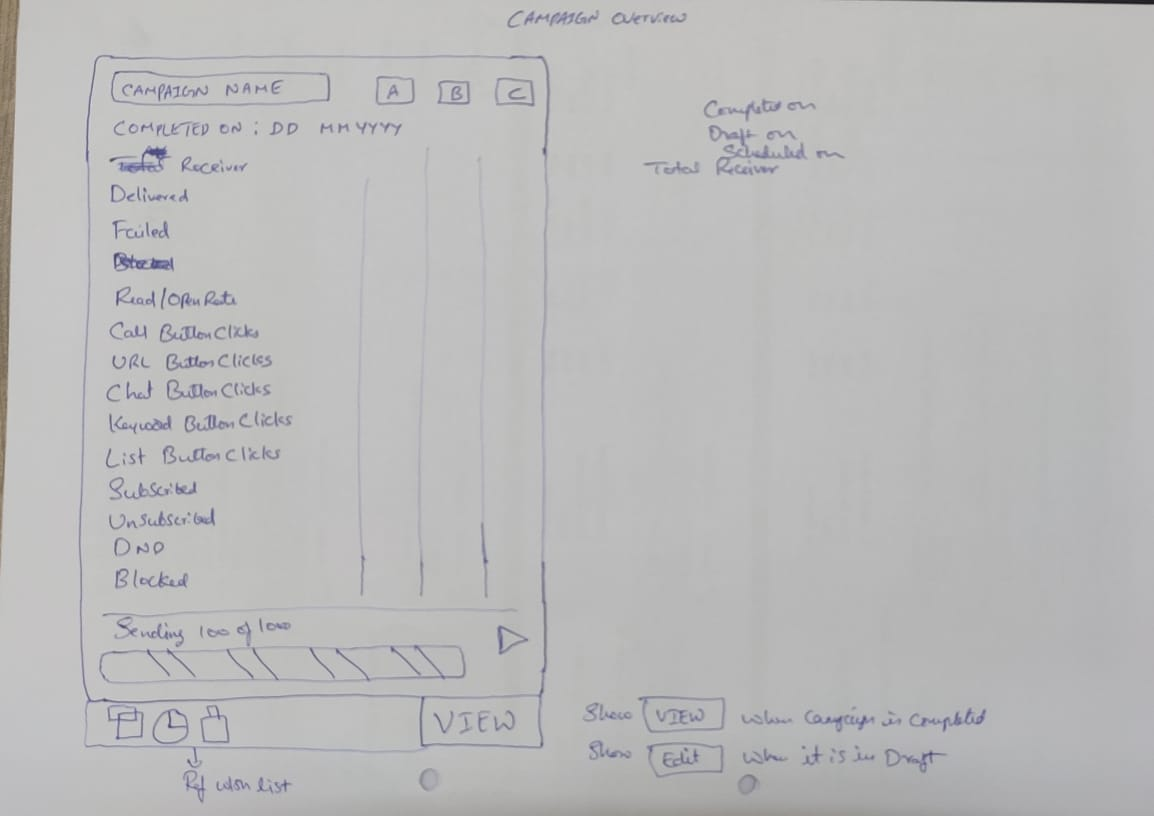 CAMPAIGN OVERVIEW
CAMPAIGN NAME A B C
COMPLETED ON : DD MM YYYY
Receiver
Delivered
Failed
Read/Open Rate
Call Button Clicks
URL Button Clicks
Chat Button Clicks
Keyword Button Clicks
List Button Clicks
Subscribed
Unsubscribed
DND
Blocked
Sending 100 of 1000
VIEW
Ref wsn list
Completed on
Draft on
Scheduled on
Total Receiver
Show VIEW when Campaign is Completed
Show Edit when it is in Draft